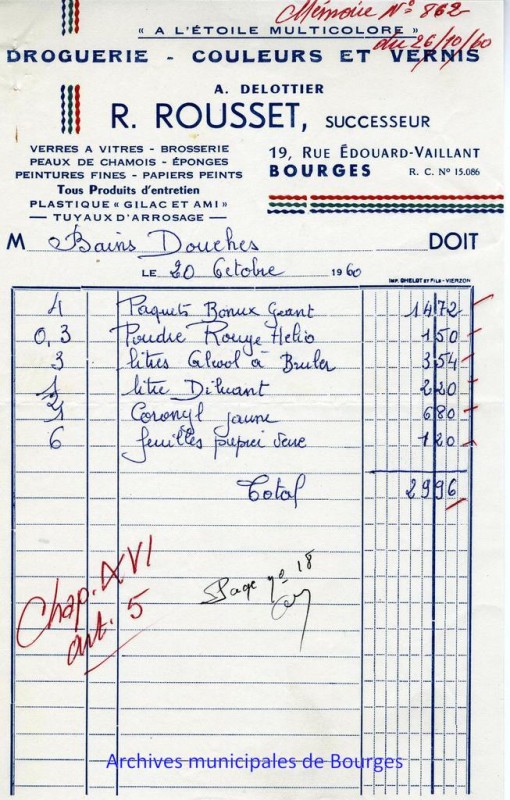 Mémoire N° 862
« A L'ÉTOILE MULTICOLORE »
du 26/10/60
DROGUERIE - COULEURS ET VERNIS
A. DELOTTIER
R. ROUSSET, SUCCESSEUR
VERRES A VITRES - BROSSERIE
PEAUX DE CHAMOIS - ÉPONGES
PEINTURES FINES - PAPIERS PEINTS
Tous Produits d'entretien
PLASTIQUE « GILAC ET AMI »
— TUYAUX D'ARROSAGE —
19, RUE ÉDOUARD-VAILLANT
BOURGES R. C. N° 15.086
M Bains Douches DOIT
LE 20 Octobre 1960
IMP. GHELOT ET FILS - VIERZON
4 Paquets Bonux Geant 1472
0,3 Poudre Rouge Helio 150
3 litres Alcool à Bruler 354
1 litre Diluant 220
2 jaune 680
6 feuilles 120
Total 2996
Chap. XVI
art. 5
Page n° 18
Archives municipales de Bourges